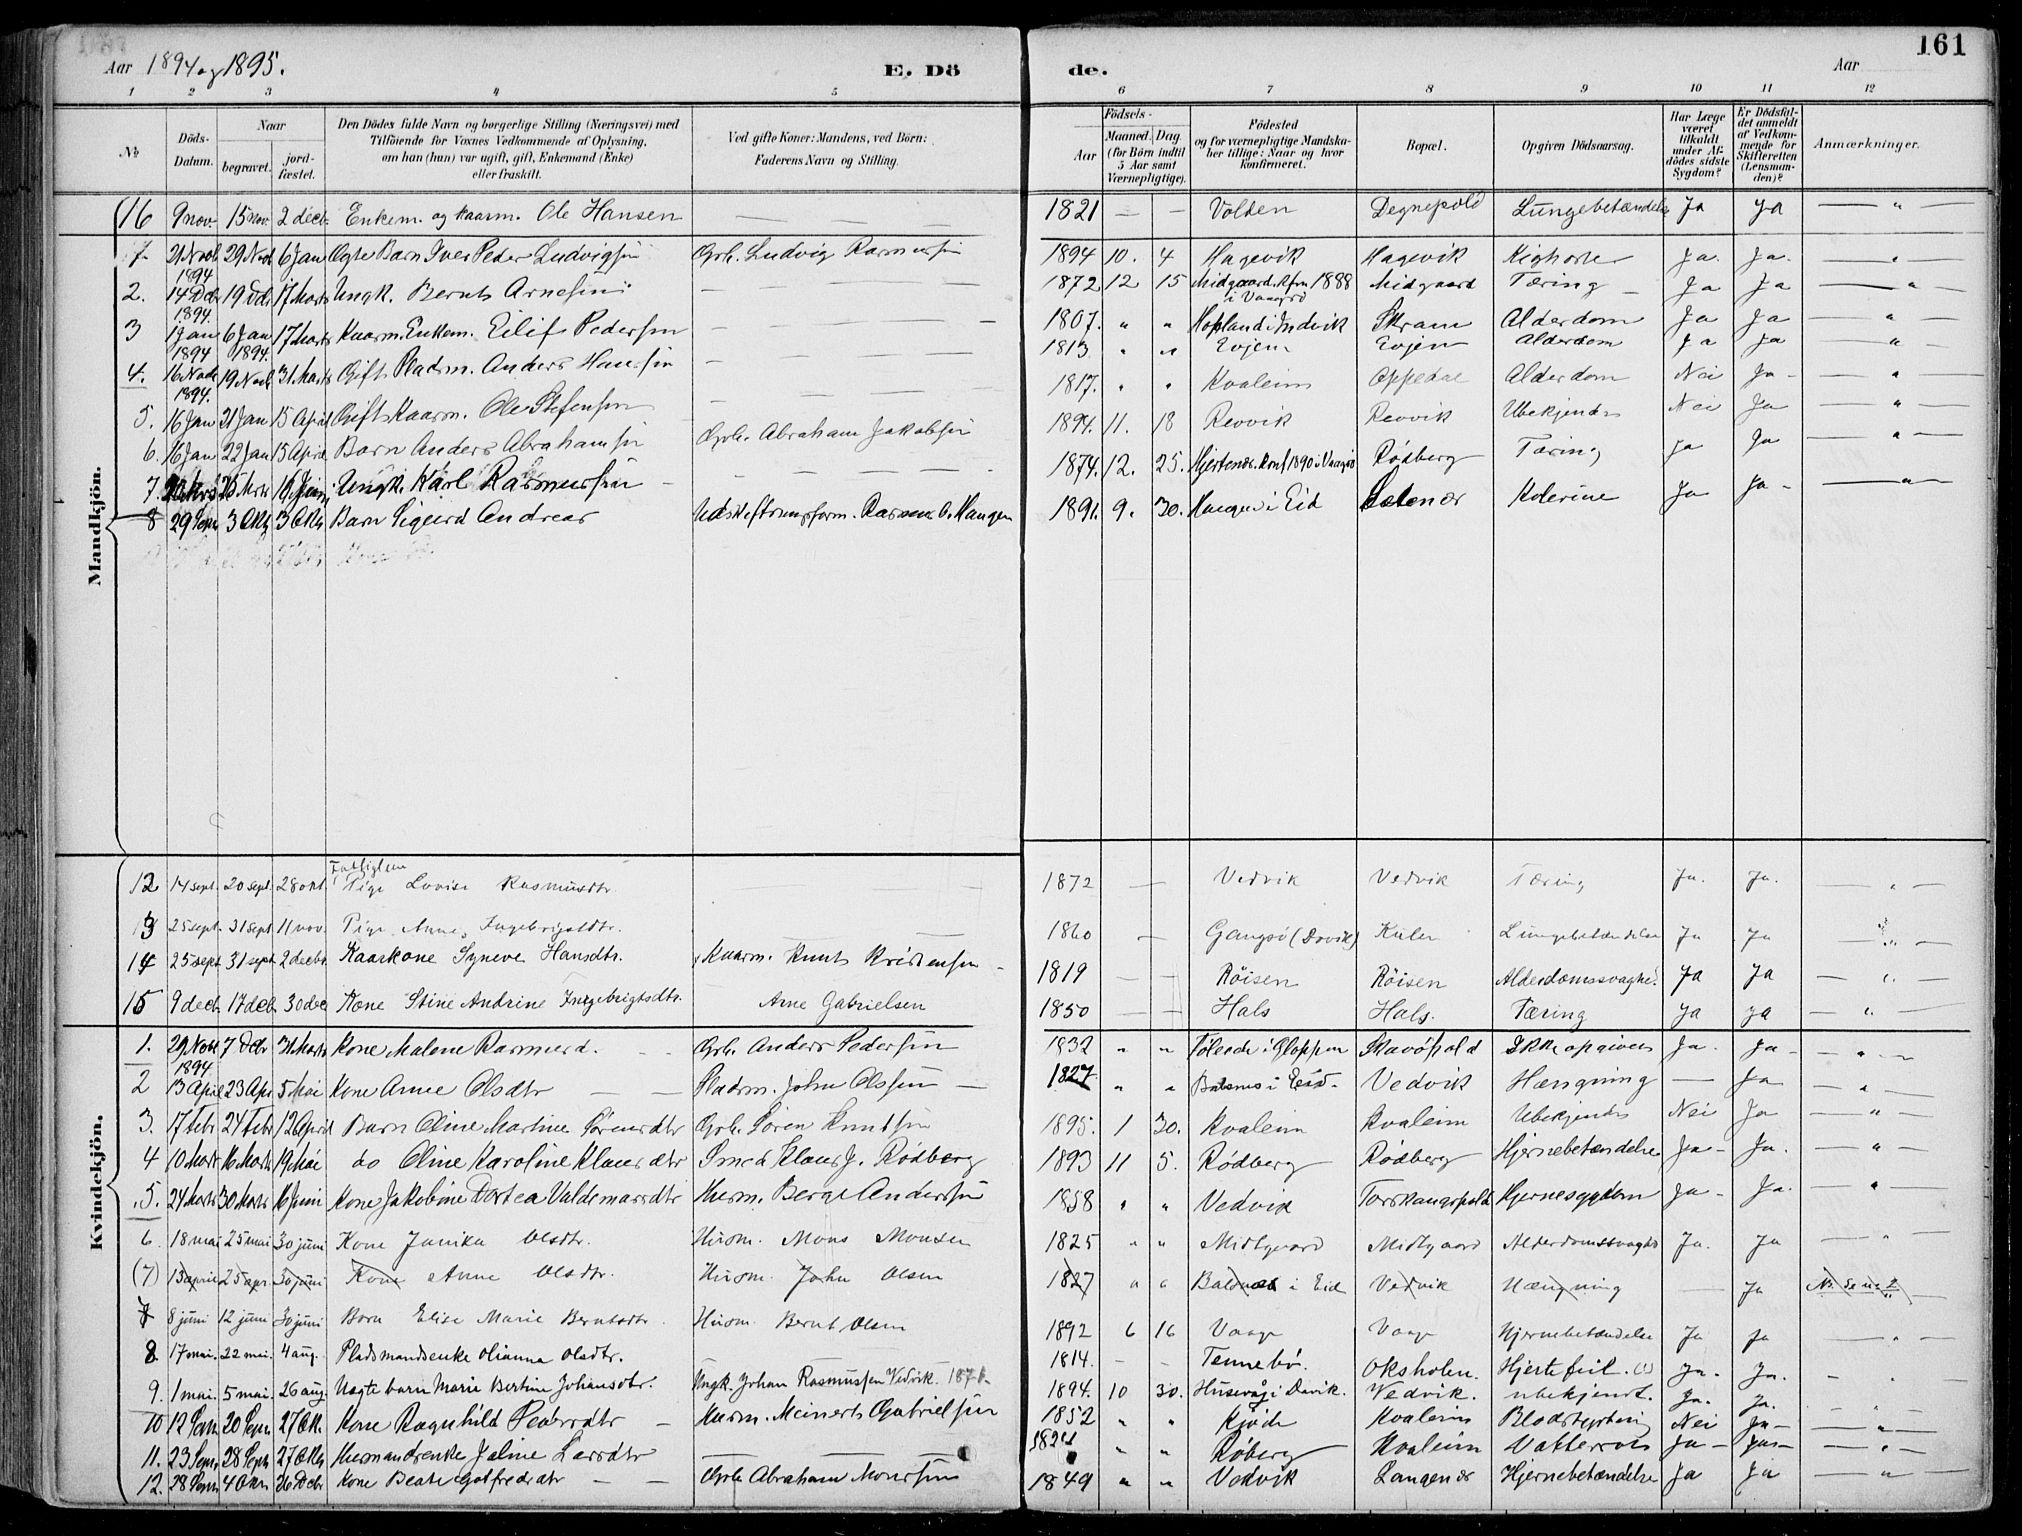 Aar 1894 og 1895.
E. Dö
de.
Aar
161
1 2 3 4 5 6 7 8 9 10 11 12
№
Döds-Datum.
Naar
begravet.
jord-fæstet.
Den Dödes fulde Navn og borgerlige Stilling (Næringsvei) med
Tilföiende for Voxnes Vedkommende af Oplysning,
om han (hun) var ugift, gift, Enkemand (Enke)
eller fraskilt.
Ved gifte Koner: Mandens, ved Börn:
Faderens Navn og Stilling.
Födsels-
Aar
Maaned. Dag.
(for Börn indtil
5 Aar samt
Værnepligtige).
Födested
og for værnepligtige Mandskaber tillige: Naar og hvor
konfirmeret.
Bopæl.
Opgiven Dödsaarsag.
Har Læge
været
tilkaldt
under Afdödes sidste
Sygdom?
Er Dödsfaldet anmeldt
af Vedkommende for
Skifteretten
(Lensmanden)?
Anmærkninger.
Mandkjön.
16 9 nov. 15 nov. 2 decb. Enkem. og kaarm. Ole Hansen — — 1821 — — Volden Degnepold Lungebetændelse Ja Ja — " —
21 Novb 1894 29 Nov 6 Jan Ægte Barn Iver Peder Ludvigsen Grb. Ludvig Rasmussen 1894 10. 4 Hagevik Hagevik Kighoste Ja. Ja. — " —
2. 14 Dcbr 1894. 19 Dcbr 17 Marts Ungk. Bernt Arnesen — — — 1872 12 15 Midgaard. Kfm 1888 i Vaagsö Midgaard Tæring Ja Ja — " —
3 1 Jan 1894 6 Jan 1894. 17 Marts Kaarm. Enkem. Eilif Pedersen — — — 1807. " " Hopland i Indvik Skram Alderdom Ja Ja — " —
4. 16 Novbr 1894. 19 Novb 31 Marts Gift Pladsm. Anders Hansen — — — 1813 " " Evjen Evjen Alderdom Ja Ja — " —
5. 16 Jan 21 Jan 15 April Gift Kaarm. Ole Stefensen — — — 1817. " " Kvaleim Oppedal Alderdom Nei Ja — " —
6. 16 Jan 22 Jan 15 April Barn Anders Abrahamsen Grb. Abraham Jakobsen 1894. 11. 18 Revvik Revvik Ubekjendt Nei Ja — " —
7. 25 Marts 16 Juni Ungk. Karl Rasmussen — — — 1874. 12. 25. Hjertenæs. Konf 1890 i Vaagsö Rödberg Tæring Ja Ja — " —
8 29 Septr 3 Oktr 3 Oktr Barn Sigurd Andreas Udskiftningsform. Rasmus O. Haugen 1891. 9. 30. Haugen i Eid Sætenær Kolerine Ja Ja — " —
Kvindekjön.
12 14 sept. 20 sept. 28 okt. Fattiglem Pige Lovise Rasmusdtr. — 1872 — Vedvik Vedvik Tæring Ja. Ja. — " —
13 25 sept. 31 sept 11 nov. Pige Anne Ingebrigtsdtr. — 1860 — Gangsö (Davik) Kulen Lungebetændelse Ja Ja — " —
14 25 sept 31 sept 2 decbr. Kaarkone Synneve Hansdtr. Kaarm. Knut Kristensen 1819 — — Röisen Röisen Alderdomssvaghed. Ja Ja — " —
15 9 decb. 17 decb. 30 dec Kone Stine Andrine Ingebrigtsdtr. Arne Gabrielsen 1850 — — Hals Hals. Tæring Ja Ja — " —
1. 29 Novbr 1894 7 Dcbr 31 Marts Kone Malene Rasmusd. Grb. Anders Pedersen 1832 " " i Gloppen Skavöpold Ikke opgivet Ja. Ja — " —
2 13 April 23 Apr. 5 Mai Kone Anne Olsdtr — — Pladsm. John Olsen — 1827 " " Balsnes i Eid Vedvik Hængning — Ja — " —
3. 17 Febr 24 Febr 12 April Barn Oline Martine Sörensdtr Grb. Sören Knutsen 1895. 1 30. Kvaleim Kvaleim Ubekjendt Nei Ja — " —
4 10 Marts 16 Marts 19 Mai do Oline Karoline Klausdtr Smed Klaus J. Rödberg 1893 11 5. Rödberg Rödberg Hjernebetændelse Ja — Ja. — " —
5. 24 Marts 30 Marts 16 Juni Kone Jakobine Dortea Valdemarsdtr Husm. Berge Andersen 1858 " " Vedvik Torskangerpold Hjernesygdom Ja — Ja. — " —
6. 18 mai 25 mai 30 juni Kone Janika Olsdtr. Husm. Mons Monsen 1825 " " Midtgaard Midtgaard Alderdomssvaghed Ja. Ja — " —
(7) 13 april 25 apr. 30 juni Kone Anne Olsdtr. Husm. John Olsen 1827 " " Balsnæs i Eid Vedvik Hængning — Ja
7 8 juni 12 juni 30 juni Barn Elise Marie Berntsdtr. Husm Bernt Olsen 1892 6 16 Vaage Vaage Hjernebetændelse Ja Ja — " —
8 17 mai. 22 mai. 4 aug. Pladsmandsenke Olianna Olsdtr. 1814. — — Tennebö. Oksholen. Hjertefeil. (?) Ja. Ja.
9. 1 mai. 5 mai. 26 aug. Uægte barn Marie Bertine Johansdtr. Ungk. Johan Rasmussen Vedvik. 1871. 1894. 10 30. Husevåg i Davik. Vedvik. ubekjendt. Ja. Ja.
10 12 Septr 20 Septr 27 Okt. Kone Ragnhild Pedersdtr — Husm. Meinert Gabrielsen 1852 " " Kjöde Kvaleim Blodstyrtning Nei Ja — " —
11. 23 Septr 28 Septr 27 Oktr Husmandsenke Jaline Larsdtr — — — 1824 " " Röberg Kvaleim Vattersot Ja — Ja — " —
12. 28 Septr 4 Oktr 26 Dcbr Kone Beate Gotfredsdtr — — Grb. Abraham Monsen 1849 " " Vedvik Langenær Hjernebetændelse Ja Ja — " —